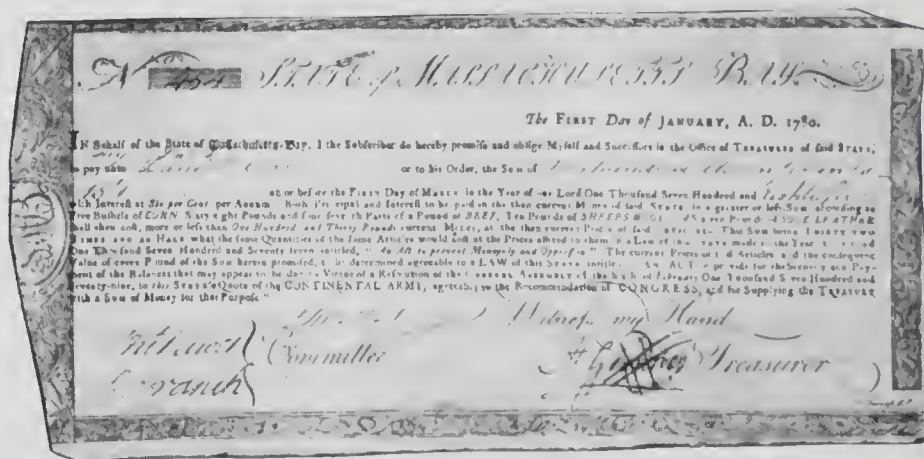 No STATE of MASSACHUSETTS BAY
The FIRST Day of JANUARY, A. D. 1780.
IN Behalf of the State of Massachusetts-Bay, I the Subscriber do hereby promise and oblige Myself and Successors in the Office of TREASURER of said STATE,
to pay unto or to his Order, the Sum of
on or before the FIRST Day of MARCH, in the Year of our Lord One Thousand Seven Hundred and Eighty
with Interest at Six per Cent. per Annum Both Principal and Interest to be paid in the then current Money of said STATE, in a greater or less Sum, according as
Five Bushels of CORN, Sixty-eight Pounds and four seventh Parts of a Pound of BEEF, Ten Pounds of SHEEPS WOOL and Sixteen Pounds of SOLE LEATHER
shall then cost, more or less than One Hundred and Thirty Pounds current Money, at the then current Prices of said Articles This Sum being THIRTY TWO
TIMES AND AN HALF what the same Quantities of the same Articles would cost at the Prices affixed to them in a Law of this STATE made in the Year of
One Thousand Seven Hundred and Seventy-seven, intitled, An Act to prevent Monopoly and Oppression The current Prices of said Articles and the consequent
Value of every Pound of the Sum herein promised, to be determined agreeable to a LAW of this STATE intitled An ACT to provide for the Security and Pay-
ment of the Balances that may appear to be due by Virtue of a Resolution of the GENERAL ASSEMBLY of the of February One Thousand Seven Hundred and
Seventy-nine, to this STATE's Quota of the CONTINENTAL ARMY, agreeable to the Recommendation of CONGRESS, and for Supplying the TREASURY
with a Sum of Money for that Purpose."
Witness my Hand
Committee Treasurer
R Cranch